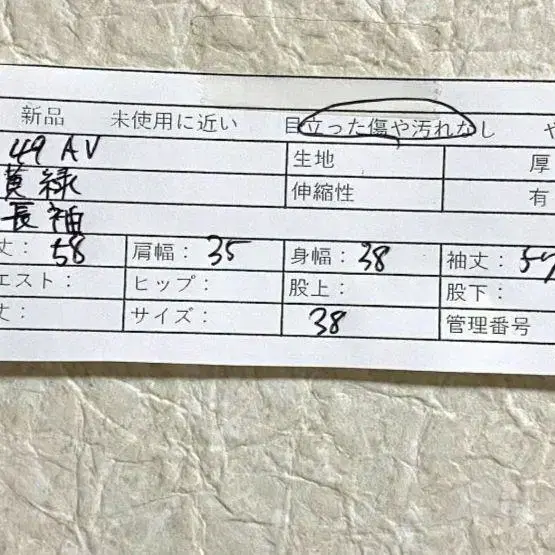 新品 未使用に近い 目立った傷や汚れなし や
49 AV 生地 厚
黄緑 伸縮性 有
長袖
丈: 58 肩幅: 35 身幅: 38 袖丈: 57
エスト: ヒップ: 股上: 股下:
丈: サイズ: 38 管理番号